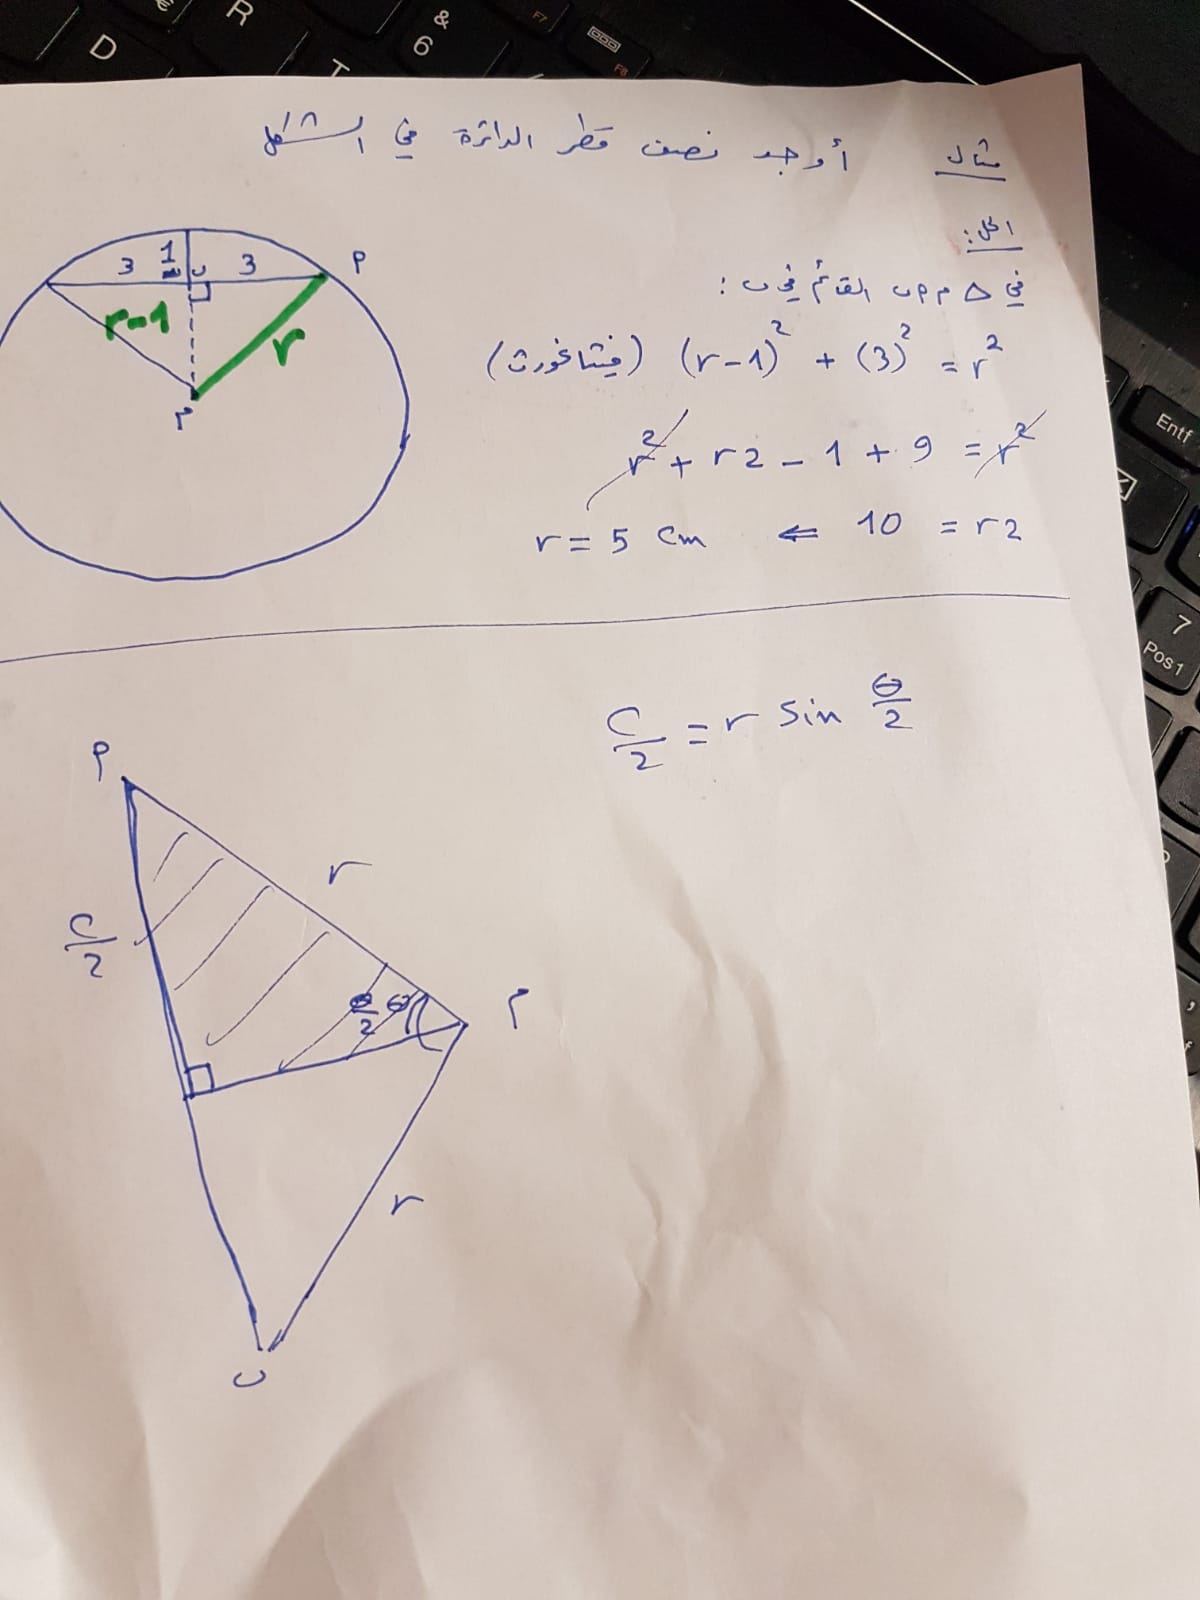 مثال أوجد نصف قطر الدائرة في الشكل
الحل:
في △ م م ب القائم في ب:
(r-1)² + (3)² = r² (فيثاغورث)
r² + r2 - 1 + 9 = r²
r = 5 cm ⇐ 10 = r2
3 1 ب 3 م
r-1
r
م
C/2 = r sin θ/2
م
r
C/2
θ/2 θ
م
r
ب
D
R
€
&
6
T
F7
F8
Entf
7
Pos1